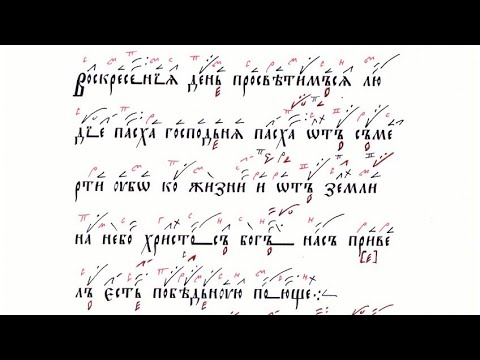 Воскресенїѧ день просвѣтимъсѧ лю
дїе пасха господьнѧ пасха ѿтъ съме
рти оубѡ ко жизни и ѿтъ земли
на небо христосъ богъ насъ приве
лъ єсть побѣдьную поюще